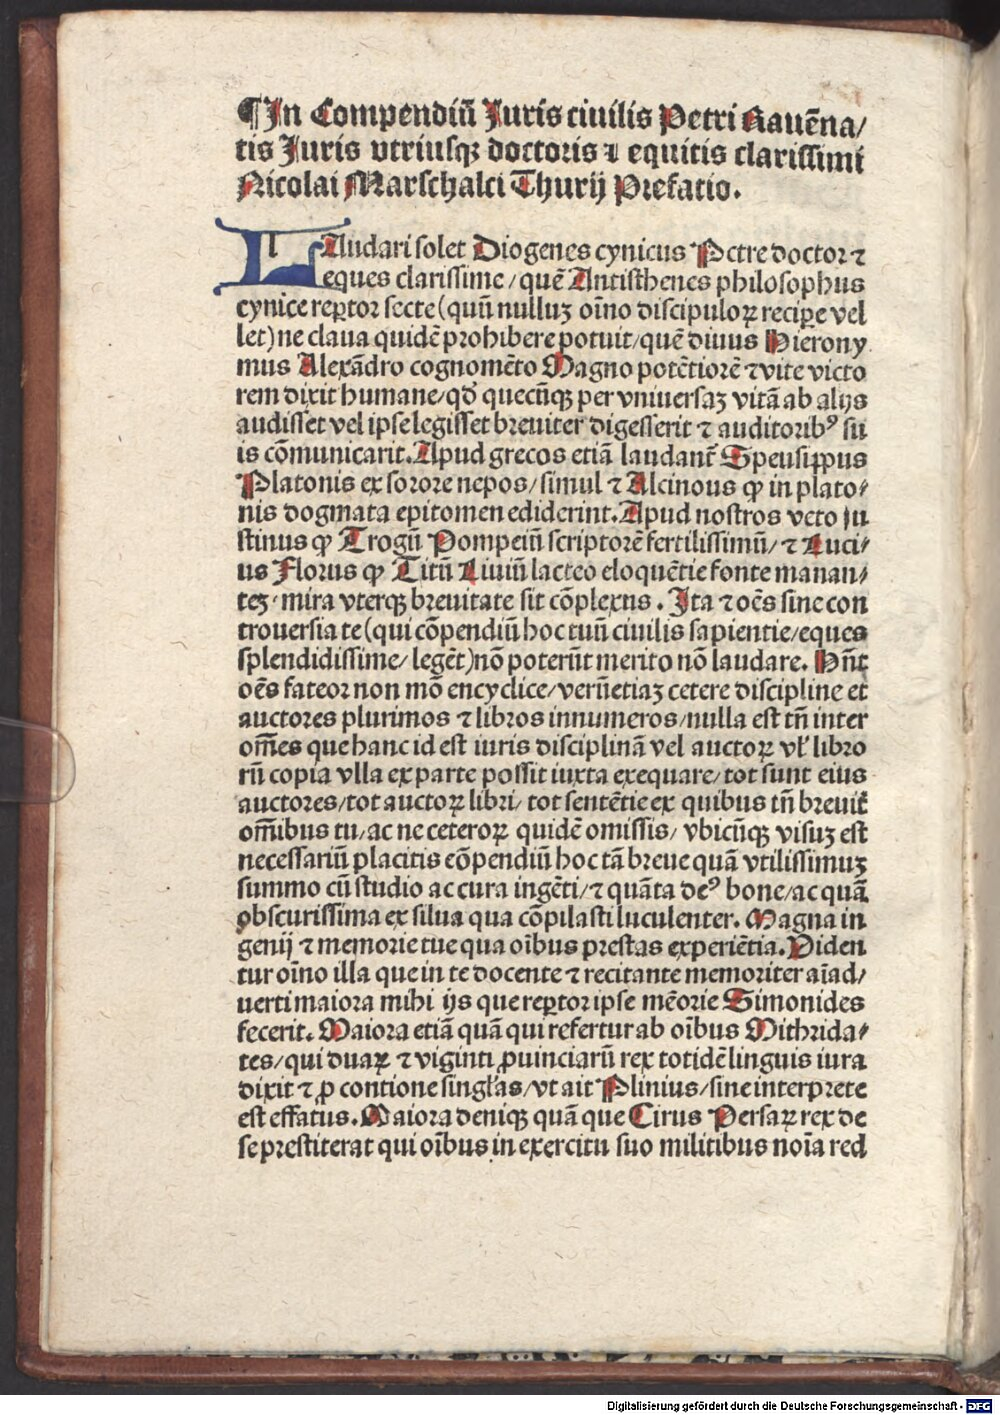 ¶In Compendiū Juris ciuilis Petri Rauēna/
tis Juris vtriusqꝫ doctoris ⁊ equitis clarissimi
Nicolai Marschalci Thurij Prefatio.
LAudari solet Diogenes cynicus Petre doctor ⁊
eques clarissime/quē Antisthenes philosophus
cynice rep̱tor secte(quū nulluꝫ oīno discipuloꝝ recip̱e vel
let)ne claua quidē prohibere potuit/quē diuus Hierony
mus Alexādro cognomēto Magno potētiorē ⁊vite victo
rem dixit humane/qđ quecūqꝫ per vniuersaꝫ vitā ab alijs
audisset vel ipse legisset breuiter digesserit ⁊ auditoribꝰ su
is cōmunicarit.Apud grecos etiā laudant᷑ Speusippus
Platonis ex sorore nepos/simul ⁊ Alcinous ꝙ in plato/
nis dogmata epitomen ediderint.Apud nostros veto Ju
stinus ꝙ Trogū Pompeiū scriptorē fertilissimū/⁊ Luci/
us Florus ꝙ Titū Liuiū lacteo eloquētie fonte manan/
teꝫ·mira vterqꝫ breuitate sit cōplexus. Ita ⁊ oēs sine con
trouersia te(qui cōpendiū hoc tuū ciuilis sapientie/eques
splendidissime/legēt)nō poterūt merito nō laudare. Hn̄t
oēs fateor non mō encyclice/verūetiaꝫ cetere discipline et
auctores plurimos ⁊ libros innumeros/nulla est tn̄ inter
om̄es que hanc id est iuris disciplinā vel auctoꝝ vl̓ libro
rū copia vlla ex parte possit iuxta exequare/tot sunt eius
auctores/tot auctoꝝ libri/tot sentētie ex quibus tn̄ breuit᷑
om̄ibus tu/ac ne ceteroꝝ quidē omissis/vbicūqꝫ visuꝫ est
necessariū placitis cōpendiū hoc tā breue quā vtilissimuꝫ
summo cū studio ac cura ingēti/⁊ quāta deꝰ bone/ac quā
obscurissima ex silua qua cōpilasti luculenter. Magna in
genij ⁊ memorie tue qua oībus prestas experiētia.Viden
tur oīno illa que in te docente ⁊ recitante memoriter aīad/
uerti maiora mihi ijs que rep̱tor ipse mēorie Simonides
fecerit. Maiora etiā quā qui refertur ab oībus Mithrida/
tes/qui duaꝝ ⁊ viginti ꝓuinciarū rex totidē linguis iura
dixit ⁊ ꝓ contione singl̓as/vt ait Plinius/sine interprete
est effatus.Maiora deniqꝫ quā que Cirus Persaꝝ rex de
se prestiterat qui oībus in exercitu suo militibus noīa red
Digitalisierung gefördert durch die Deutsche Forschungsgemeinschaft - DFG